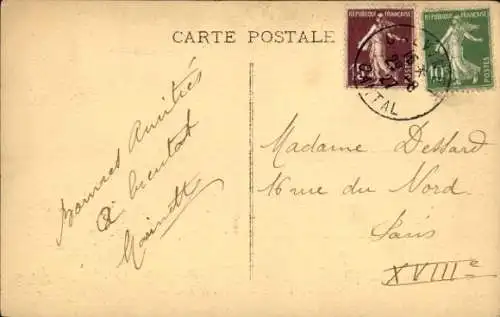 CARTE POSTALE
REPUBLIQUE FRANÇAISE
POSTES
REPUBLIQUE FRANÇAISE
10
POSTES
CANTAL
Bonnes Amitiés
A bientôt
Madame Dessard
16 rue du Nord
Paris
XVIIIe